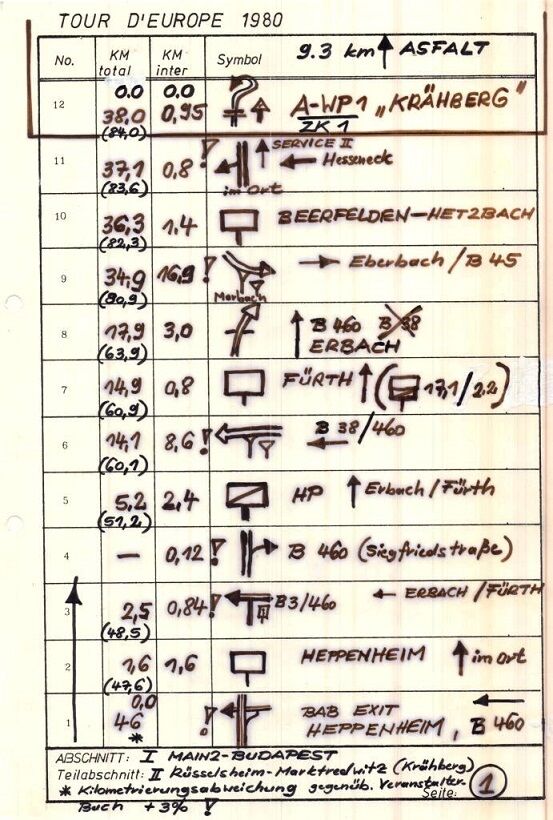 TOUR D'EUROPE 1980
No. KM total KM inter Symbol 9.3 km ASFALT
12 0.0 38,0 (84,0) 0.0 0,95 A-WP1 „KRÄHBERG"
ZK 1
11 37,1 (83,6) 0,8 ! im Ort SERVICE II Hesseneck
10 36,3 (82,3) 1,4 BEERFELDEN-HETZBACH
9 34,9 (80,9) 16,9 ! Marbach Eberbach / B 45
8 17,9 (63,9) 3,0 B 460 B 38
ERBACH
7 14,9 (60,9) 0,8 FÜRTH (17,1/2,2)
6 14,1 (60,1) 8,6 ! B 38/460
5 5,2 (51,2) 2,4 HP Erbach/Fürth
4 — 0,12 ! B 460 (Siegfriedstraße)
3 2,5 (48,5) 0,84 ! B3/460 ERBACH /FÜRTH
2 1,6 (47,6) 1,6 HEPPENHEIM im Ort
1 0,0 46 * ! BAB EXIT
HEPPENHEIM, B 460
ABSCHNITT: I MAINZ-BUDAPEST
Teilabschnitt: II Rüsselsheim-Marktredwitz (Krähberg)
* Kilometrierungsabweichung gegenüb. Veranstalter-
Buch +3% ! Seite: 1